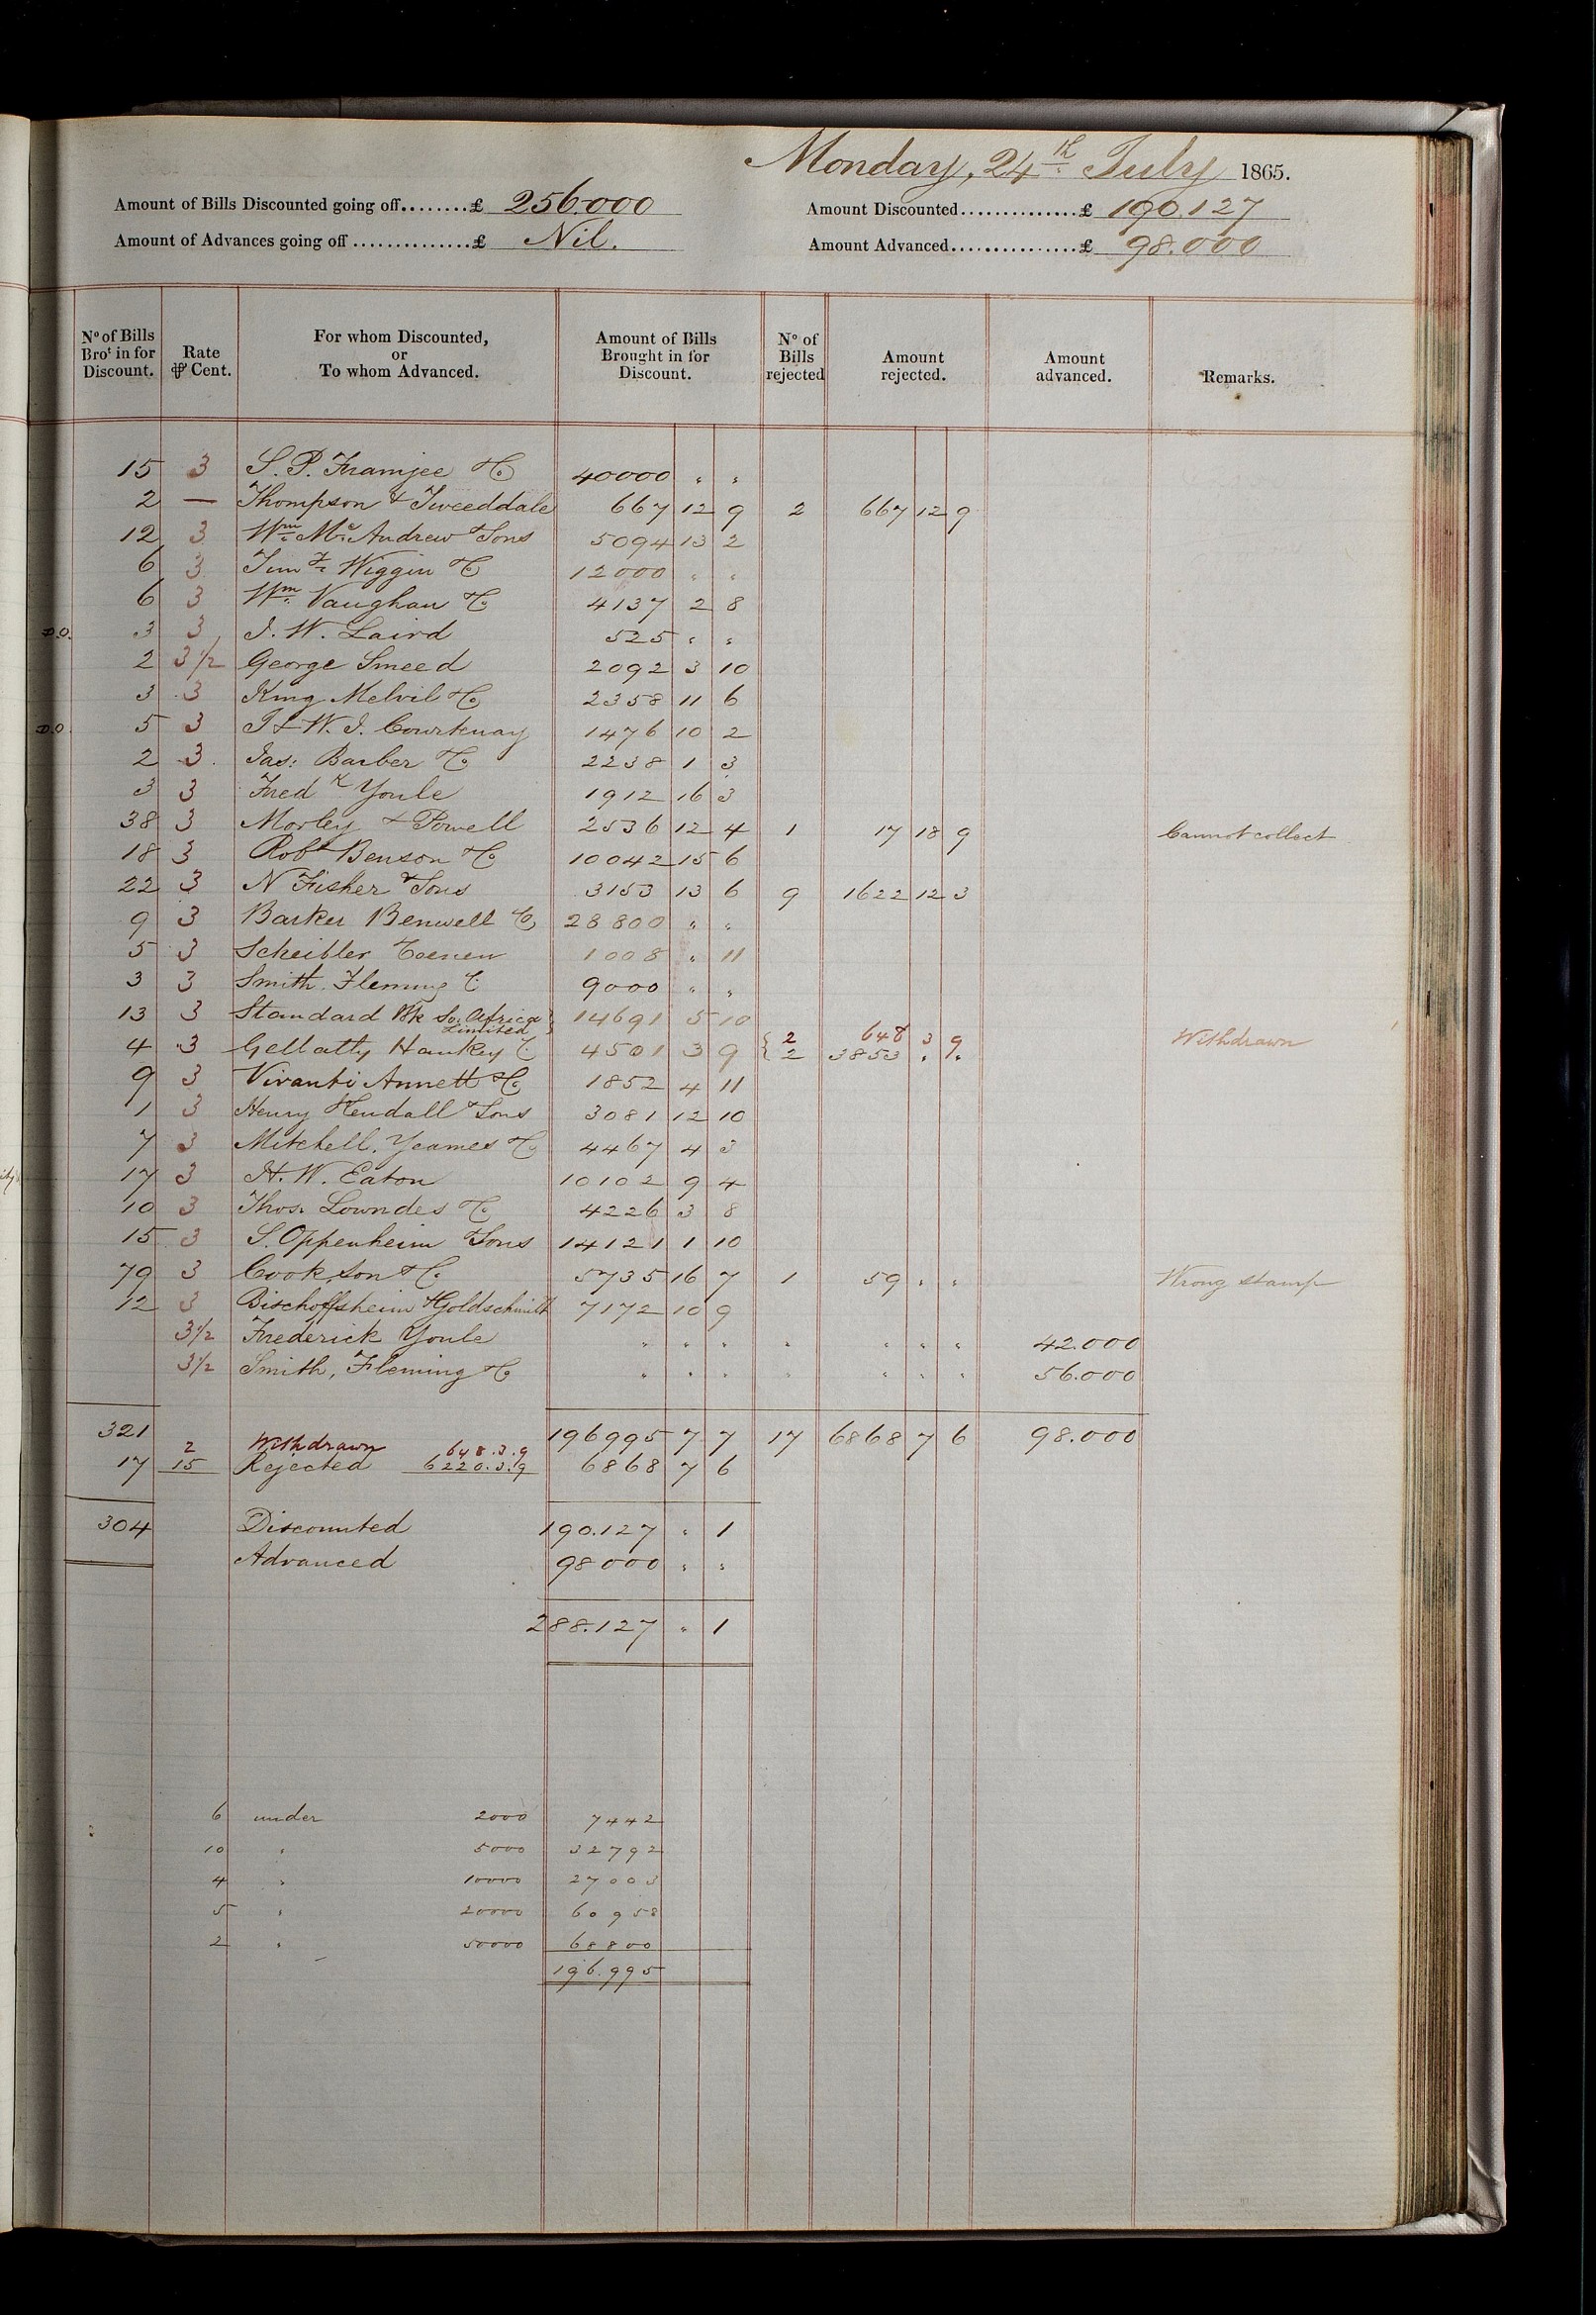 Monday, 24th July 1865.
Amount of Bills Discounted going off........£ 256.000 Amount Discounted..............£ 190.127
Amount of Advances going off ..............£ Nil. Amount Advanced................£ 98.000
No of Bills Brot in for Discount. Rate ⅌ Cent. For whom Discounted, or To whom Advanced. Amount of Bills Brought in for Discount. No of Bills rejected Amount rejected. Amount advanced. Remarks.
15 3 S. P. Framjee & Co 40000 " "
2 — Thompson & Tweeddale 667 12 9 2 667 12 9
12 3 Wm. McAndrew & Sons 5094 13 2
6 3 Timy. Wiggin & Co 12000 " "
6 3 Wm. Vaughan & Co 4137 2 8
D.O. 3 3 J. W. Laird 525 " "
2 3½ George Smeed 2092 3 10
3 3 King Melvil & Co 2358 11 6
D.O. 5 3 T & W. J. Courtenay 1476 10 2
2 3 Jas: Barber & Co 2238 1 3
3 3 Fredk Youle 1912 16 3
38 3 Morley & Powell 2536 12 4 1 17 18 9 Cannot collect
18 3 Robt Benson & Co 10042 15 6
22 3 N Fisher & Sons 3153 13 6 9 1622 12 3
9 3 Barker Benwell & Co 28800 " "
5 3 Scheibler Coenen 1008 " 11
3 3 Smith. Fleming & Co 9000 " "
13 3 Standard Bk So. Africa Limited 14691 5 10
4 3 Gellatly Hankey & Co 4501 3 9 { 2 648 3 9 Withdrawn
2 3853 " "
9 3 Viranti Annett & Co 1852 4 11
1 3 Henry Kendall & Sons 3081 12 10
7 3 Mitchell. Yeames & Co 4467 4 3
17 3 H. W. Eaton 10102 9 4
10 3 Thos. Lowndes & Co 4226 3 8
15 3 S. Oppenheim & Sons 14121 1 10
79 3 Cook, Son & Co. 5735 16 7 1 59 " " Wrong stamp
12 3 Bischoffsheim & Goldschmidt 7172 10 9
3½ Frederick Youle " " " " " " " 42.000
3½ Smith, Fleming & Co " " " " " " " 56.000
321 196995 7 7 17 6868 7 6 98.000
2 Withdrawn 648.3.9
17 15 Rejected 6220.3.9 6868 7 6
304 Discounted 190.127 " 1
Advanced 98000 " "
288.127 " 1
6 under 2000 7442
10 " 5000 32792
4 " 10000 27003
5 " 20000 60958
2 " 50000 68800
196.995